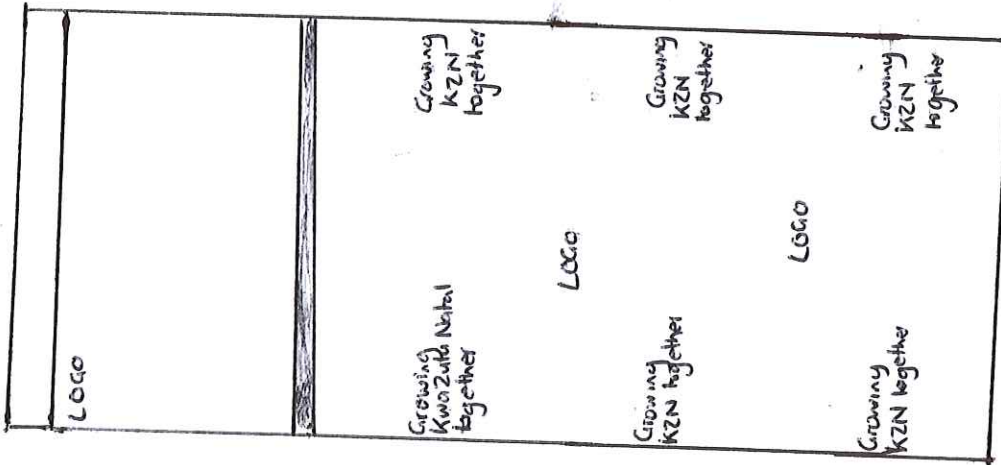 LOGO
Growing
KwaZulu Natal
together
Growing
KZN
together
LOGO
Growing
KZN together
Growing
KZN
together
LOGO
Growing
KZN together
Growing
KZN
together